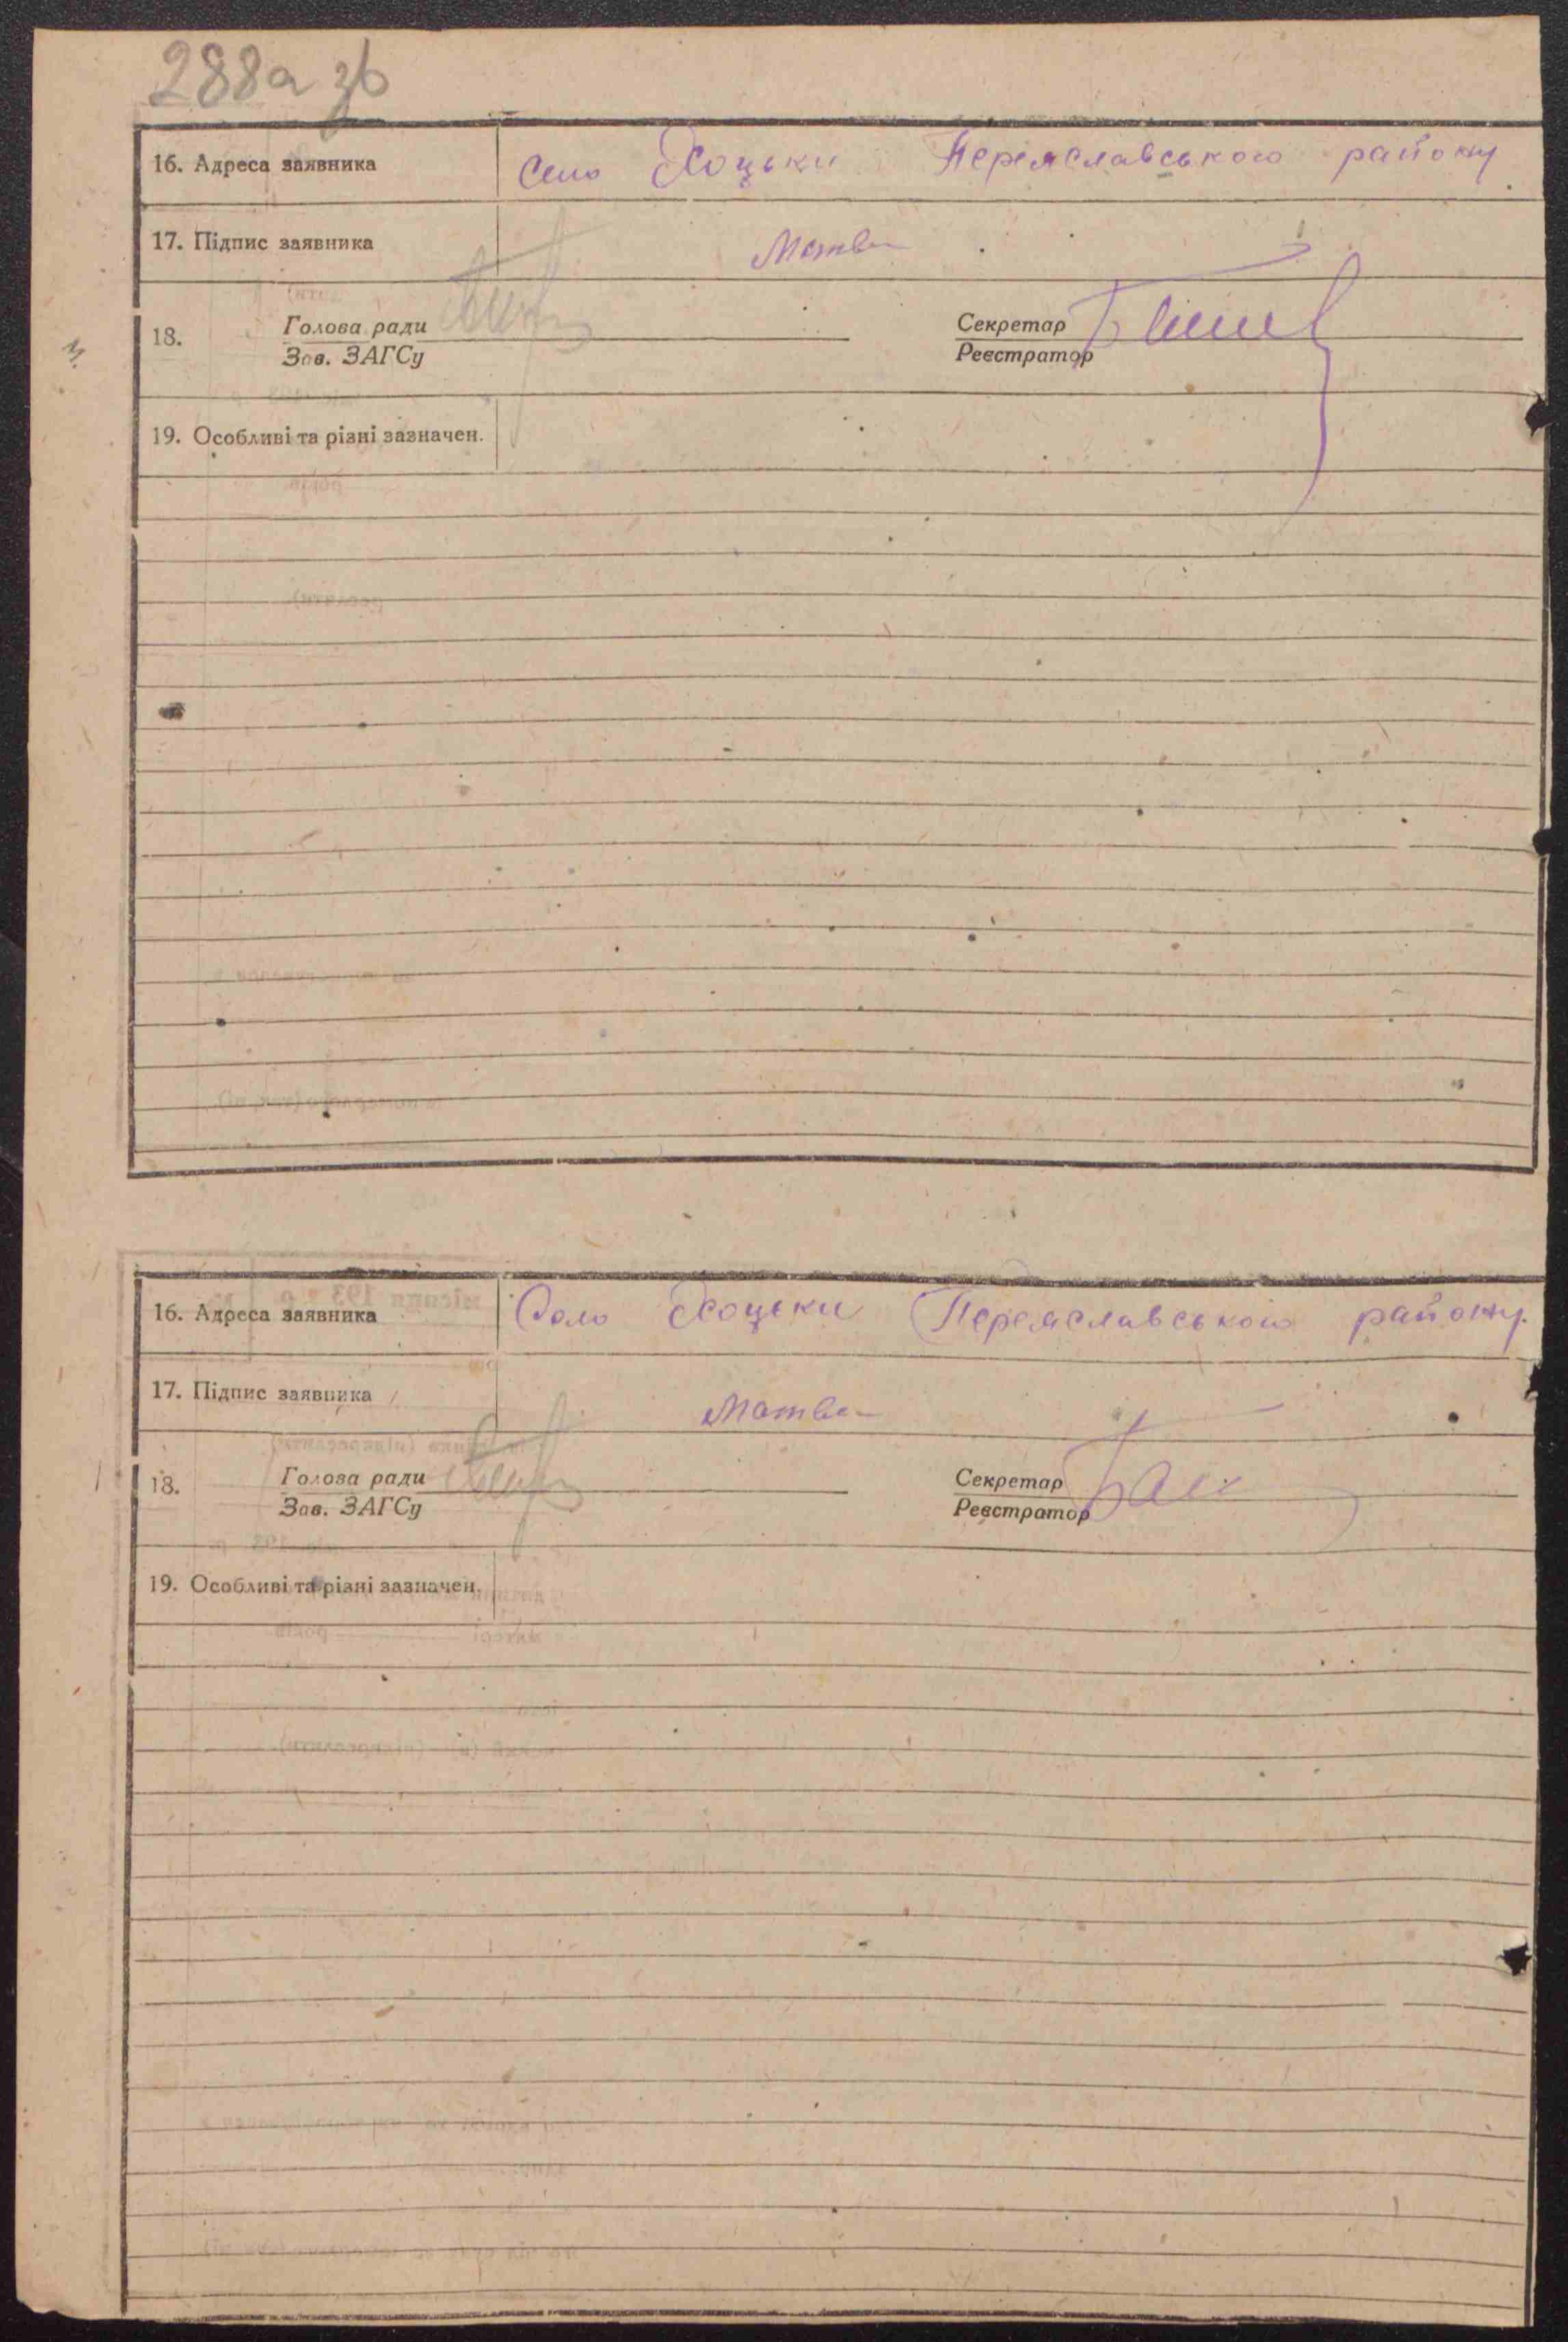 288а зв
16. Адреса заявника Село Хоцьки Переяславського району
17. Підпис заявника Матв
18. Голова ради Секретар
Зав. ЗАГСу Реєстратор
19. Особливі та різні зазначен.
16. Адреса заявника Село Хоцьки Переяславського району.
17. Підпис заявника Матв
18. Голова ради Секретар
Зав. ЗАГСу Реєстратор
19. Особливі та різні зазначен.